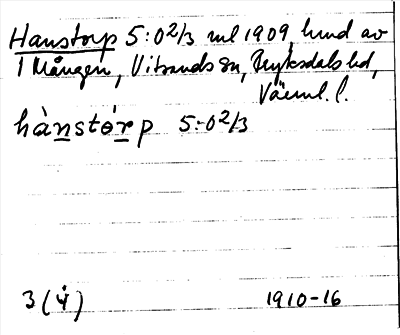 Hanstorp 5:0 2/3 ml 1909 hmd av
1 Mången, Vitsands sn, Fryksdals hd,
Värml. l.
hànstɵ̀rp 5:0 2/3
3 (ẏ) 1910-16